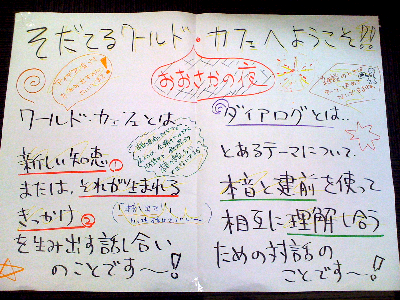 そだてるワールド・カフェへようこそ!!
おおさかの夜
ワールド・カフェとは
新しい知恵①
または、それが生まれる
きっかけ②
を生み出す話し合い
のことです〜!
ダイアログとは..
とあるテーマについて
本音と建前を使って
相互に理解し合う
ための対話の
ことです〜!